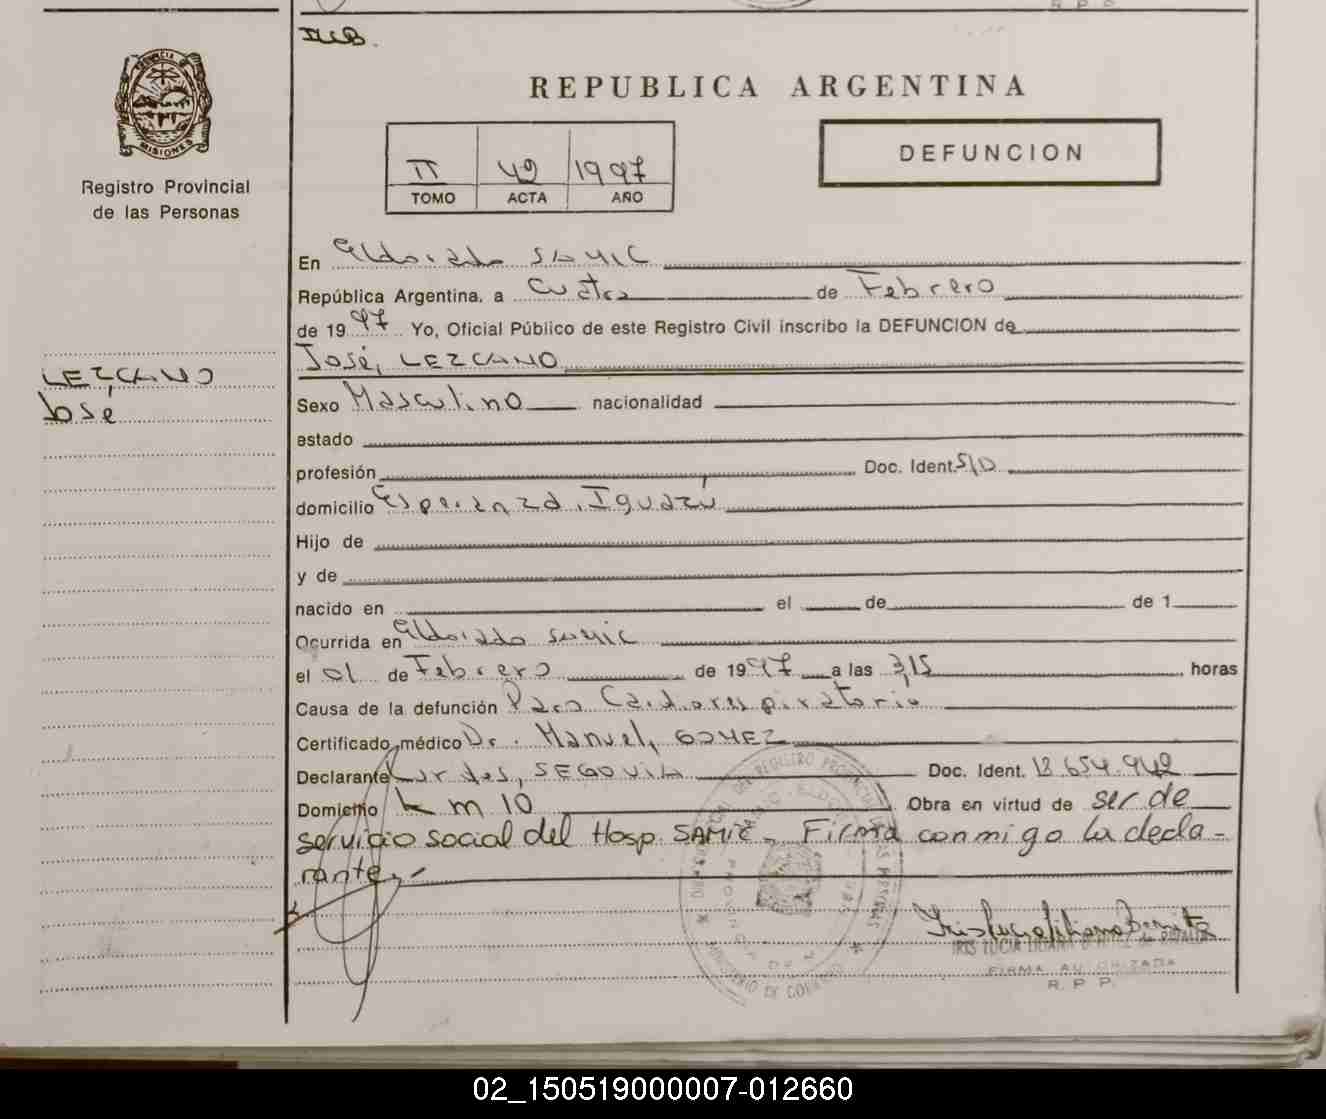 ILLB.
PROVINCIA DE
MISIONES
Registro Provincial
de las Personas
REPUBLICA ARGENTINA
II 42 1997
TOMO ACTA AÑO
DEFUNCION
En Eldorado SAMIC
República Argentina, a Cuatro de Febrero
de 1997 Yo, Oficial Público de este Registro Civil inscribo la DEFUNCION de
José, LEZCANO
LEZCANO
José
Sexo Masculino nacionalidad
estado
profesión Doc. Ident. S/D
domicilio Esperanza, Iguazú
Hijo de
y de
nacido en el de de 1
Ocurrida en Eldorado SAMIC
el 01 de Febrero de 1997 a las 3,15 horas
Causa de la defunción Paro Cardiorespiratorio
Certificado médico Dr. Manuel, GOMEZ
Declarante Lurdes, SEGOVIA Doc. Ident. 13.654.942
Domicilio km 10 Obra en virtud de ser de
servicio social del Hosp. SAMIC. Firma conmigo la decla-
rante.
Iris Lucia Liliana Benitez
IRIS LUCIA LILIANA BENITEZ de
FIRMA AUTORIZADA
R. P. P.
02_150519000007-012660